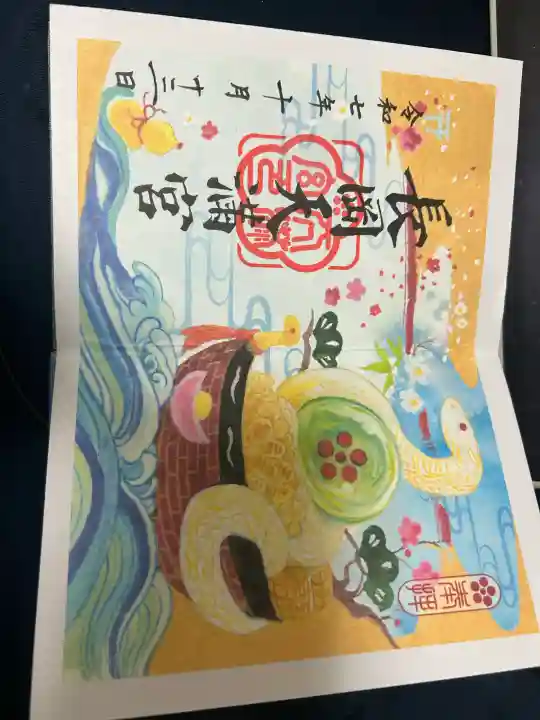 奉拝
長岡天満宮
令和七年十月廿二日